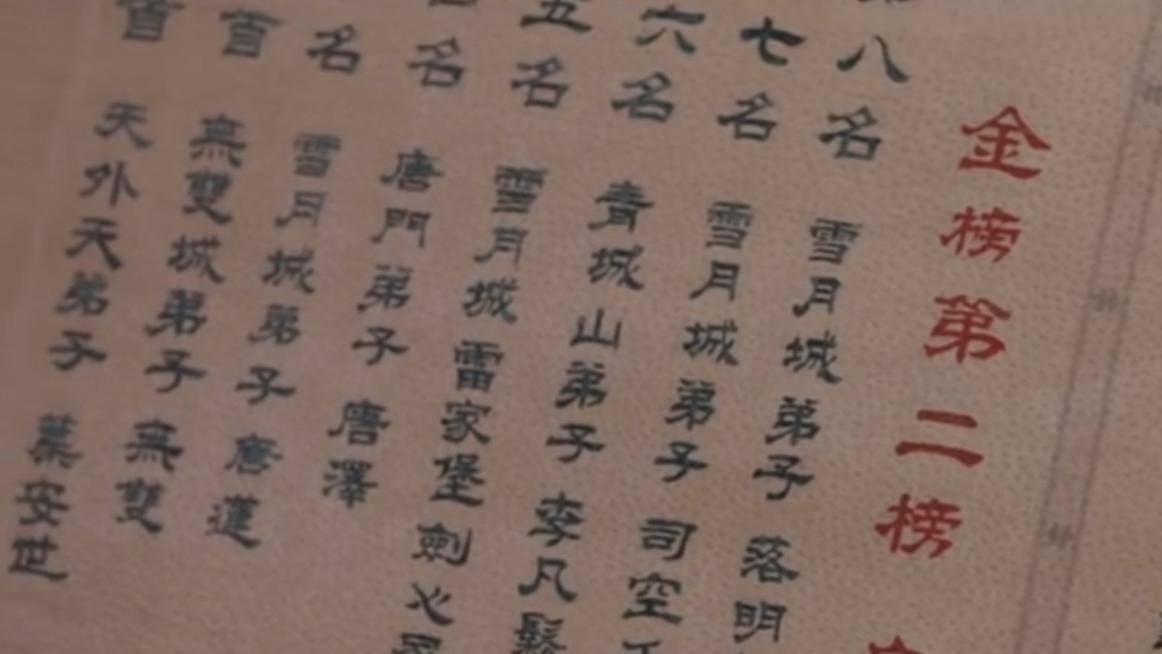 金榜第二榜
八名 雪月城弟子 落明
七名 雪月城弟子 司空
六名 青城山弟子 李凡鬆
五名 雪月城 雷家堡 劍心
名 唐門弟子 唐澤
名 雪月城弟子 唐蓮
首 無雙城弟子 無雙
首 天外天弟子 葉安世